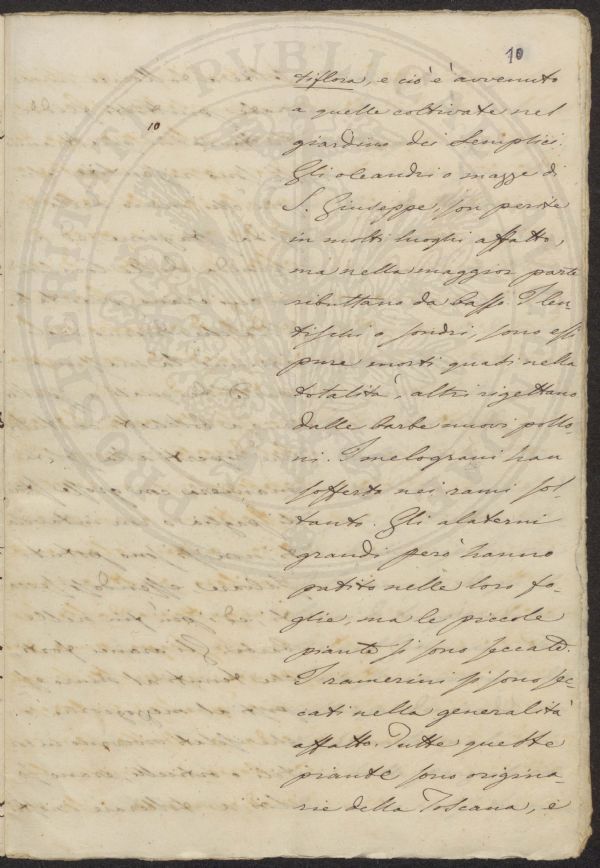 10
10
tiflora, e ciò è avvenuto
a quelle coltivate nel
giardino dei Semplici.
Gli oleandri o mazze di
S. Giuseppe, son perite
in molti luoghi affatto,
ma nella maggior parte
ributtano da basso. I len-
tischi o sondri, sono essi
pure morti quasi nella
totalità, altri rigettano
dalle barbe nuovi pollo-
ni. I melograni han
sofferto nei rami sol-
tanto. Gli alaterni
grandi però hanno
patito nelle loro fo-
glie, ma le piccole
piante si sono seccate.
I ramerini si sono sec-
cati nella generalità
affatto. Tutte queste
piante sono origina-
rie della Toscana, e
PROSPERITATI PUBLICAE